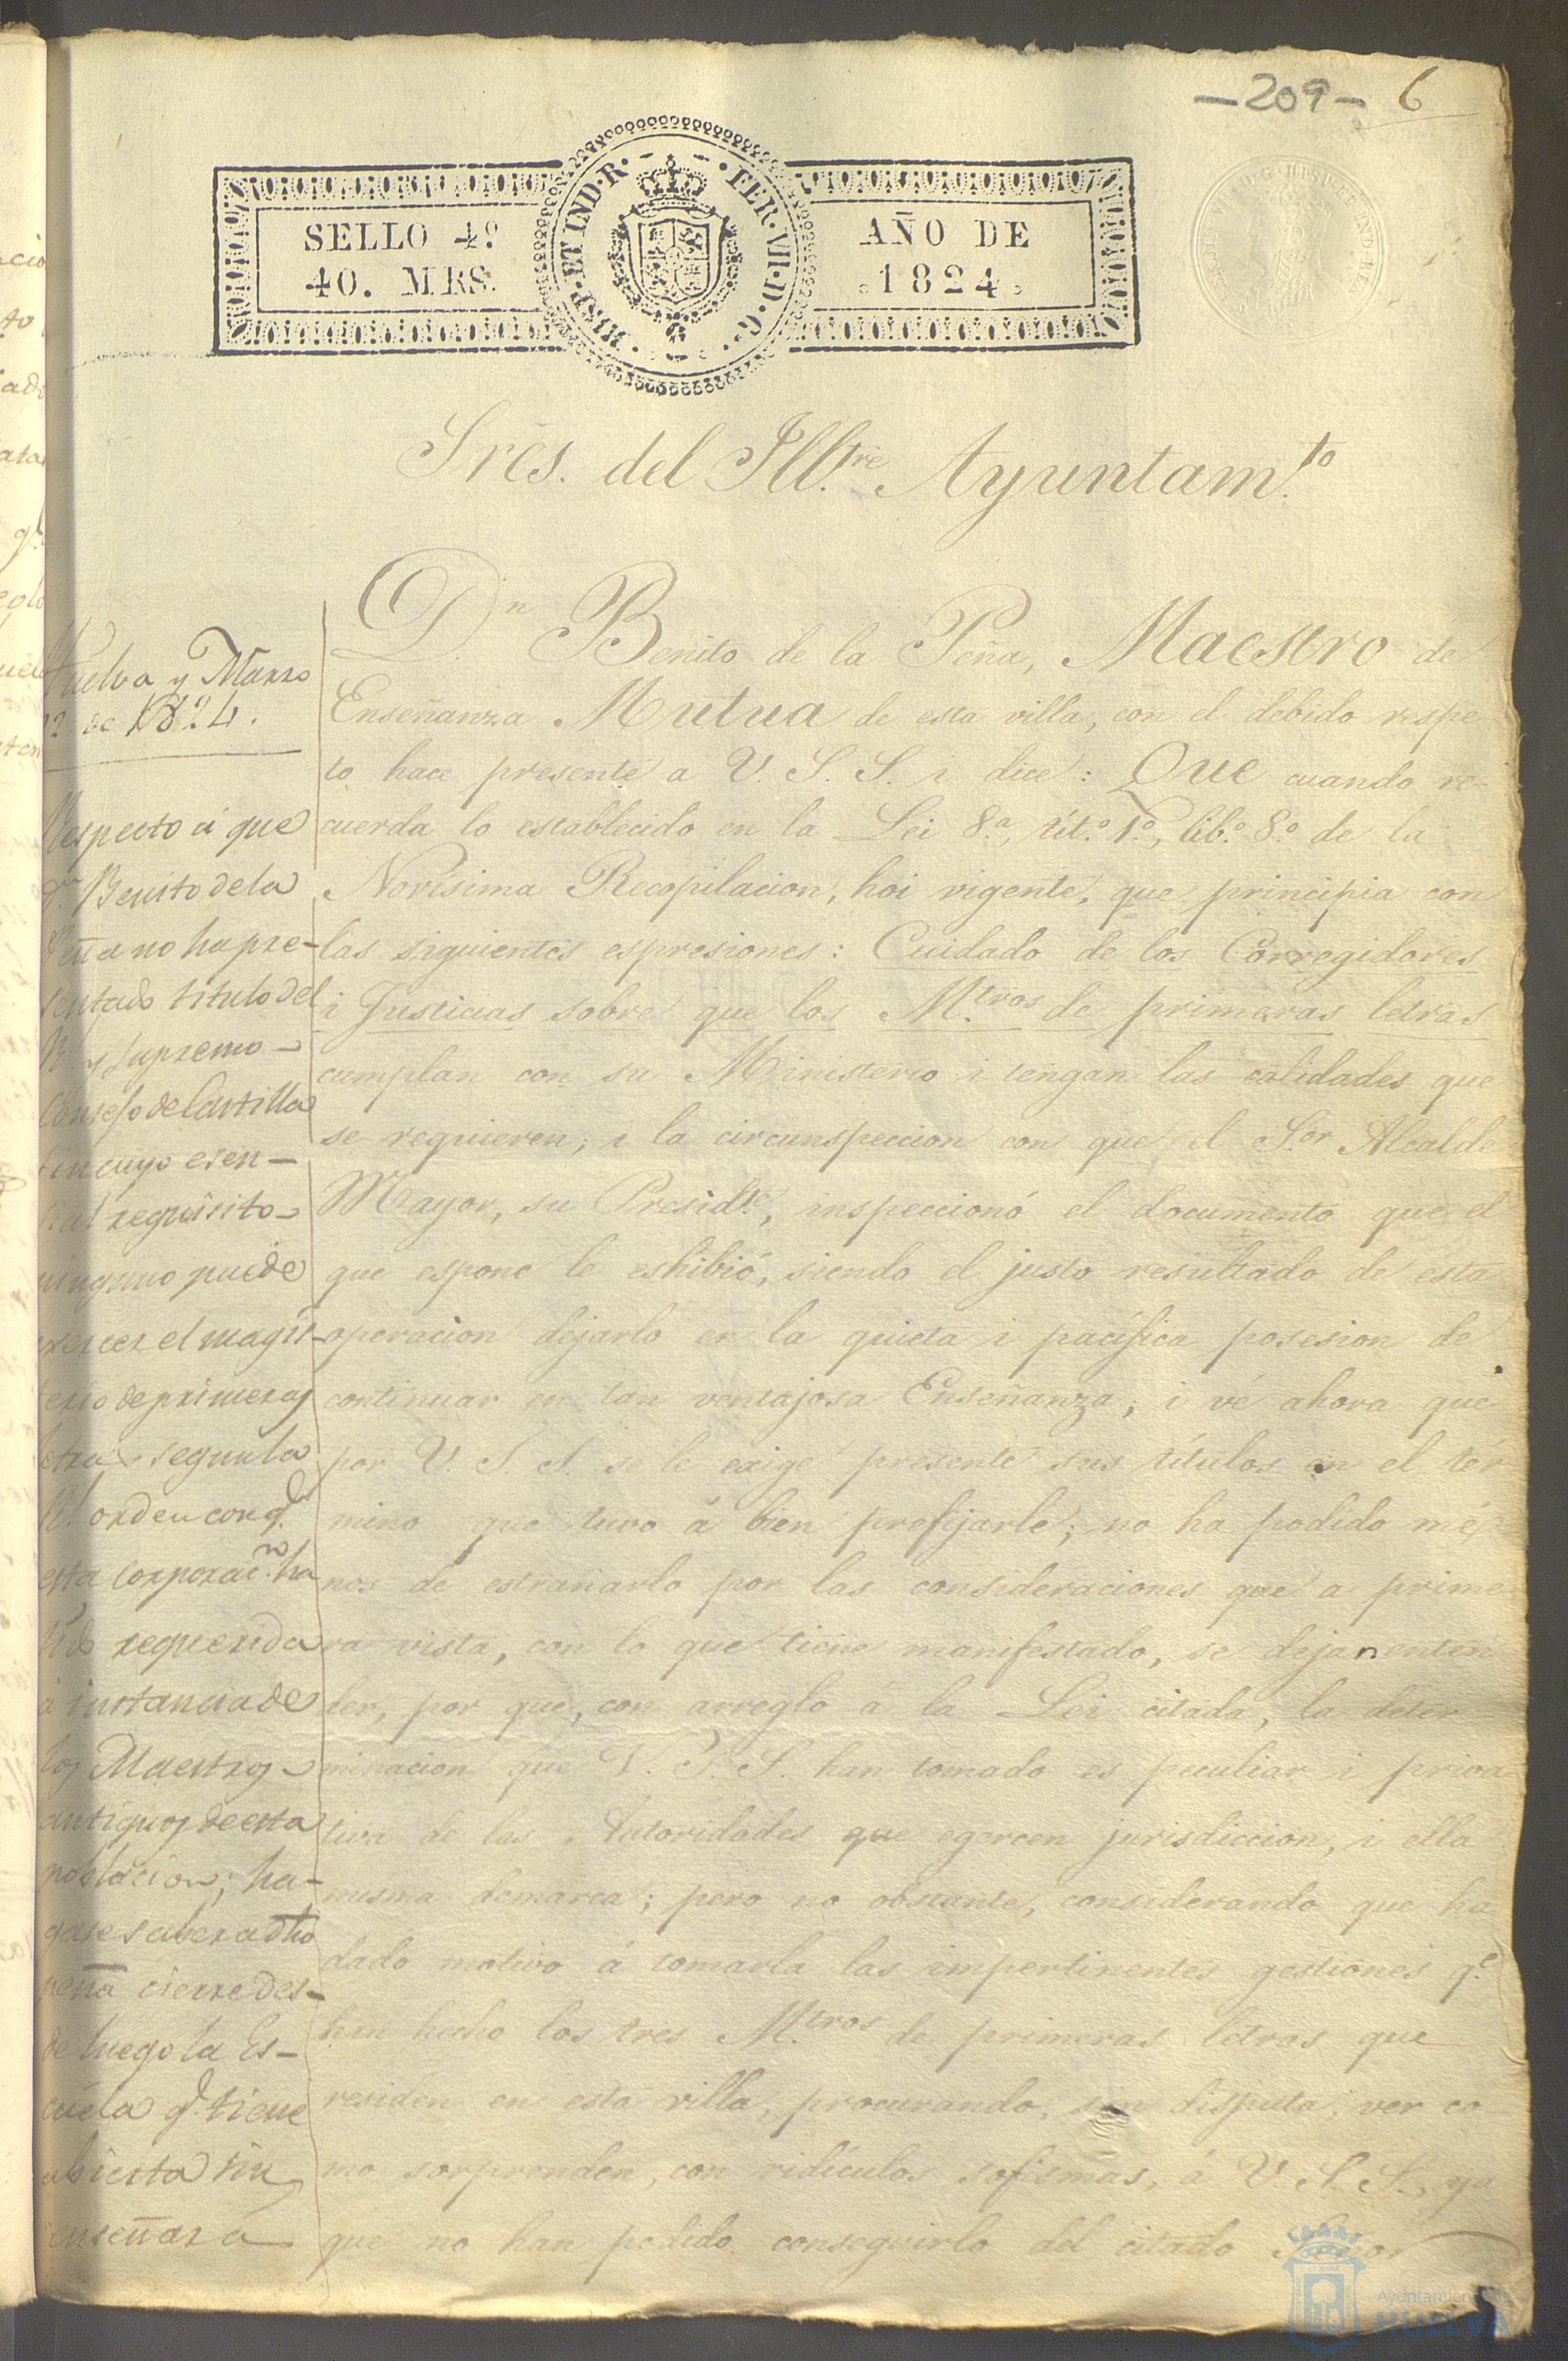 -209- 6
SELLO 4º
40. MRS.
HISP·ET IND·R· FER·VII·D·G·
AÑO DE
1824
Sres. del Ill.tre Ayuntam.to
D.n Benito de la Peña, Maestro de
Enseñanza Mutua de esta villa, con el debido respe-
to hace presente a V. S. S. i dice: Que cuando re-
cuerda lo establecido en la Lei 8.a, tít.o 1.o, lib.o 8.o de la
Novisima Recopilacion, hoi vigente, que principia con
las siguientes espresiones: Cuidado de los Corregidores
i Justicias sobre que los M.tros de primeras letras
cumplan con su Ministerio i tengan las calidades que
se requieren; i la circunspeccion con que el S.or Alcalde
Mayor, su Presid.te, inspeccionó el documento que el
que espone le eshibió, siendo el justo resultado de esta
operacion dejarlo en la quieta i pacífica posesion de
continuar en tan ventajosa Enseñanza; i vé ahora que
por V. S. S. se le exige presente sus títulos en el tér
mino que tuvo á bien prefijarle; no ha podido mé
nos de estrañarlo por las consideraciones que a prime
ra vista, con lo que tiene manifestado, se dejan enten
der, por que, con arreglo á la Lei citada, la deter-
minacion que V. S. S. han tomado es peculiar i priva
tiva de las Autoridades que egercen jurisdiccion, i ella
misma demarca; pero no obstante, considerando que ha
dado motivo á tomarla las impertinentes gestiones q.e
han hecho los tres M.tros de primeras letras que
residen en esta villa, procurando, sin disputa, ver co
mo sorprenden, con ridículos sofismas, á V. S. S., ya
que no han podido conseguirlo del citado Señor
Huelva y Marzo
12 de 1824.
Respecto á que
d.n Benito de la
Peña no ha pre-
sentado titulo del
R. y Supremo
Consejo de Castilla
sin cuyo esen-
cial requisito
ninguno puede
exercer el magis-
terio de primeras
letras segun la
R.l orden con q.e
esta corporac.n ha
sido requerida
á instancia de
los Maestros
antiguos de esta
poblacion; ha-
gase saber a dho
Peña cierre des-
de luego la Es-
cuela q.e tiene
abierta sin
enseñar á
Ayuntamiento de
HUELVA